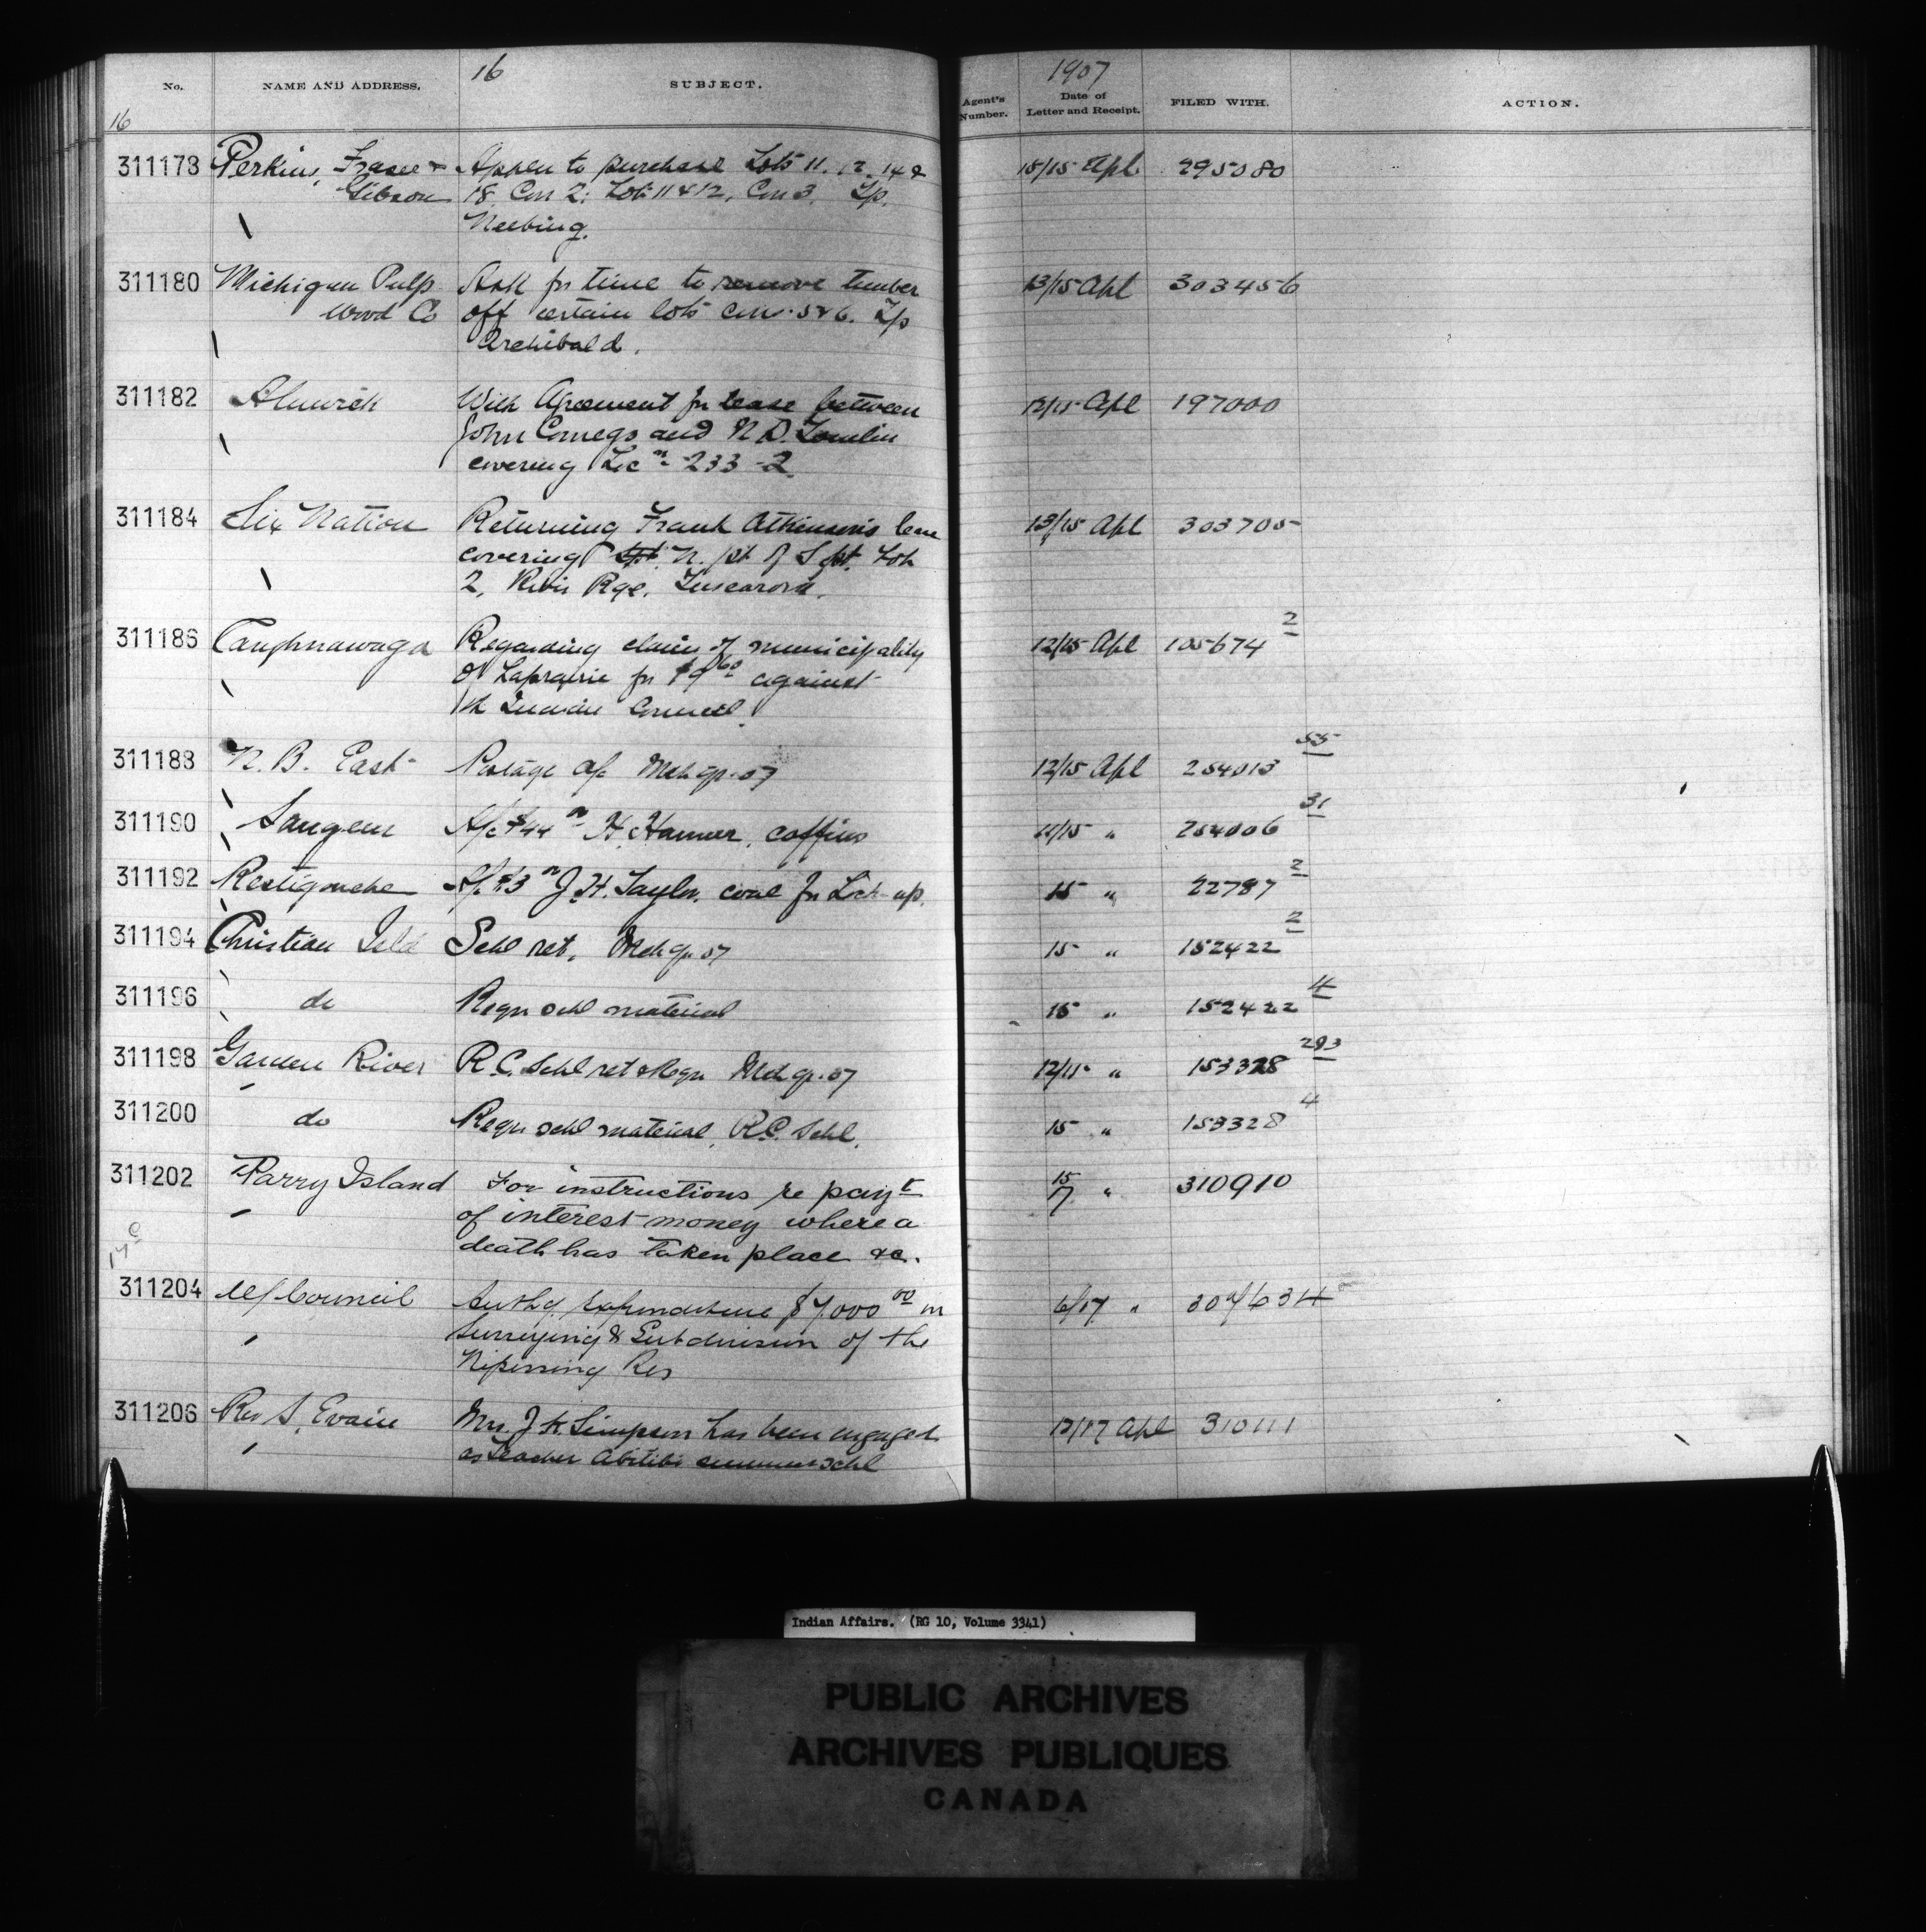 16 1907
No. NAME AND ADDRESS. SUBJECT. Agent's Number. Date of Letter and Receipt. FILED WITH. ACTION.
16
311178 Perkins, Fraser & Appln to purchase Lots 11. 12. 14 & 15/15 Apl 295080
Gibson 18. Con 2; Lots 11 & 12, Con 3. Tp.
Neebing.
311180 Michigan Pulp Ask for time to remove timber 13/15 Apl 303456
Wood Co off certain lots cons. 5 & 6. Tp
Archibald.
311182 Alnwick With Agreement for lease between 12/15 Apl 197000
John Comego and N.D. Tomlin
covering Lic 233-2
311184 Six Nation Returning Frank Atkinson's lease 13/15 Apl 303705
covering N. pt of S pt. Lot
2, River Rge. Tuscarora.
311186 Caughnawaga Regarding claim of municipality 12/15 Apl 105674 2
of Laprairie for $9 60 against
the Indian Council.
311188 N.B. East Postage a/c Mch qr. 07 12/15 Apl 254013 55
311190 Saugeen A/c $44 H. Hamer, coffins 11/15 " 254006 31
311192 Restigouche A/c $3 J.H. Taylor. coal for Lock-up. 15 " 22787 2
311194 Christian Isld Schl ret. Mch qr. 07 15 " 152422 2
311196 do Reqn schl material 15 " 152422 4
311198 Garden River R.C. Schl ret & Reqn Mch qr. 07 12/15 " 153328 293
311200 do Reqn schl material, R.C. Schl. 15 " 153328 4
311202 Parry Island For instructions re payt 15/7 " 310910
of interest money where a
death has taken place &c.
17
311204 Council Authg expenditure $7,000 00 in 6/17 "
Surveying & Subdivision of the
Nipissing Res
311206 Rev S. Evain Mrs. J. H. Simpson has been engaged 12/17 Apl 310111
as teacher Abitibi summer schl
Indian Affairs. (RG 10, Volume 3341)
PUBLIC ARCHIVES
ARCHIVES PUBLIQUES
CANADA